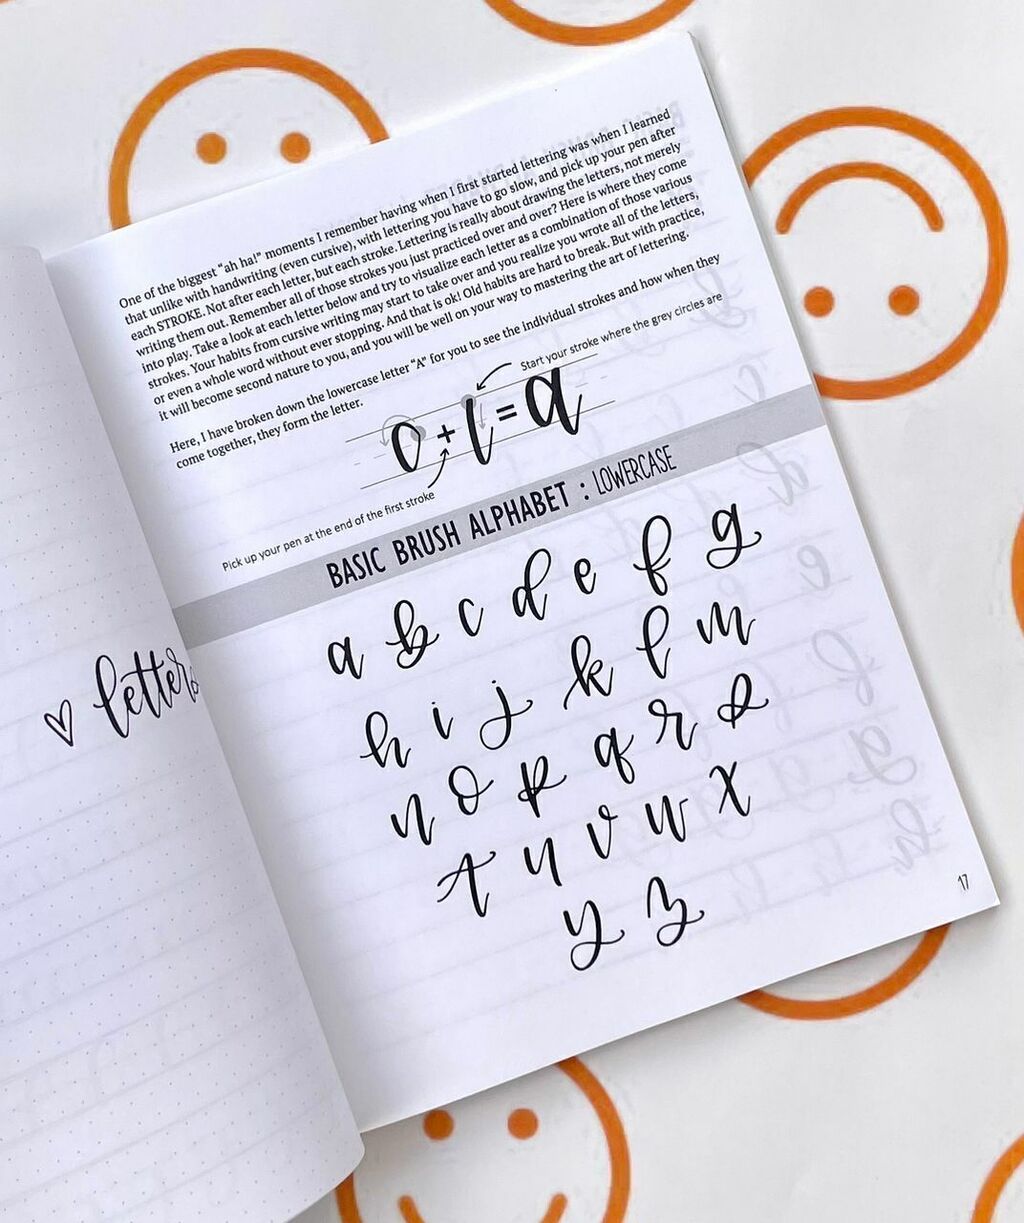 One of the biggest "ah ha!" moments I remember having when I first started lettering was when I learned
that unlike with handwriting (even cursive), with lettering you have to go slow, and pick up your pen after
each STROKE. Not after each letter, but each stroke. Lettering is really about drawing the letters, not merely
writing them out. Remember all of those strokes you just practiced over and over? Here is where they come
into play. Take a look at each letter below and try to visualize each letter as a combination of those various
strokes. Your habits from cursive writing may start to take over and you realize you wrote all of the letters,
or even a whole word without ever stopping. And that is ok! Old habits are hard to break. But with practice,
it will become second nature to you, and you will be well on your way to mastering the art of lettering.
Here, I have broken down the lowercase letter "A" for you to see the individual strokes and how when they
come together, they form the letter.
Start your stroke where the grey circles are
o + l = a
Pick up your pen at the end of the first stroke
BASIC BRUSH ALPHABET : LOWERCASE
a b c d e f g
h i j k l m
n o p q r s
t u v w x
y z
17
♡ letters